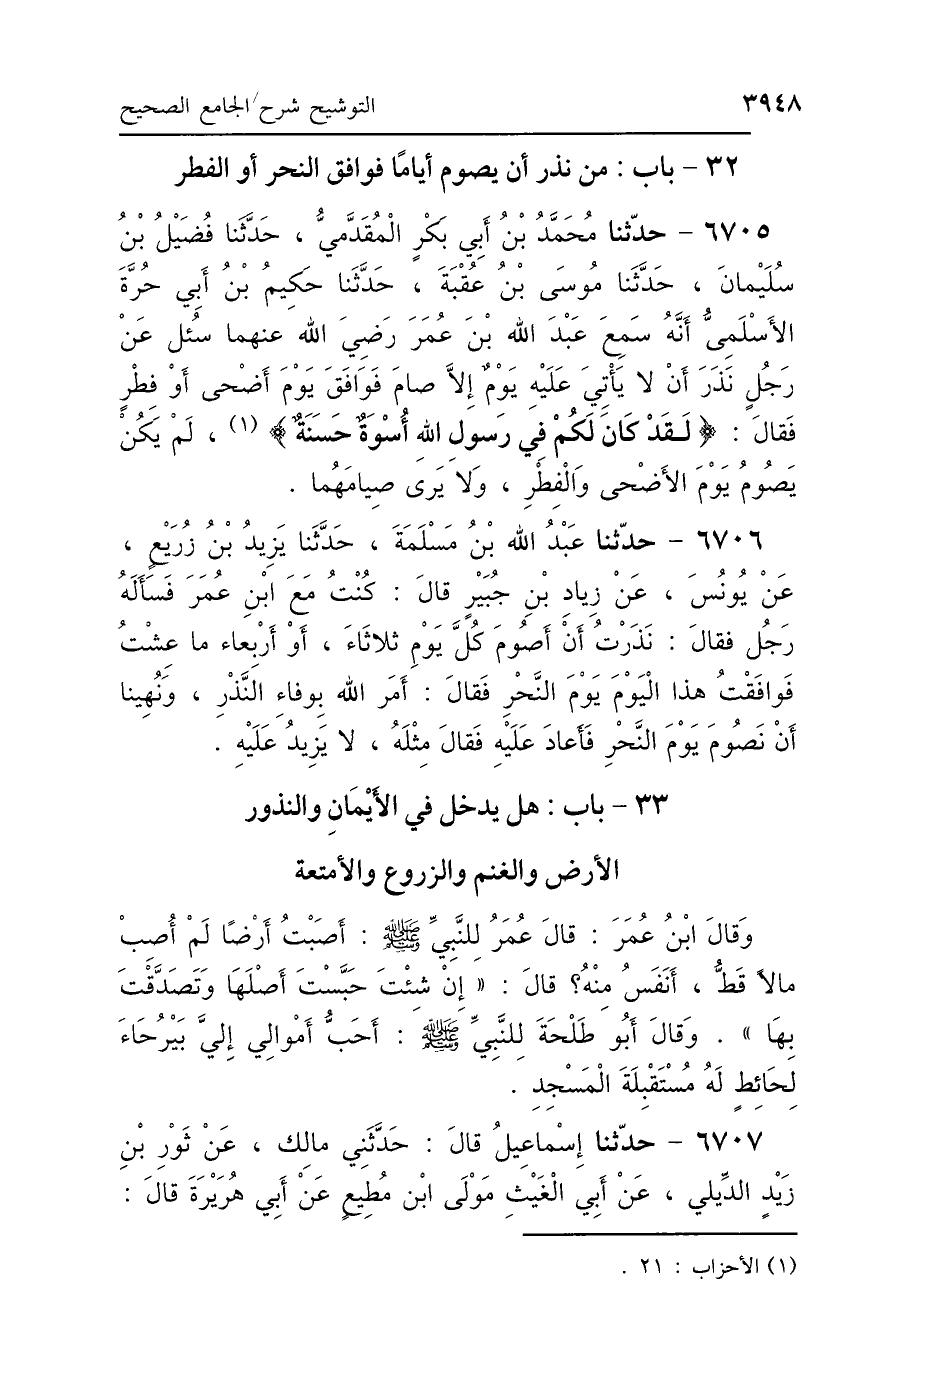 ٣٩٤٨ التوشيح شرح/الجامع الصحيح
٣٢ - باب : من نذر أن يصوم أيامًا فوافق النحر أو الفطر
٦٧٠٥ - حدّثنا مُحَمَّدُ بْنُ أَبِي بَكْرٍ الْمُقَدَّمِيُّ ، حَدَّثَنا فُضَيْلُ بْنُ
سُلَيْمانَ ، حَدَّثَنا مُوسَى بْنُ عُقْبَةَ ، حَدَّثَنا حَكِيمُ بْنُ أَبِي حُرَّةَ
الأَسْلَمِيُّ أَنَّهُ سَمِعَ عَبْدَ الله بْنَ عُمَرَ رَضِيَ الله عنهما سُئل عَنْ
رَجُلٍ نَذَرَ أَنْ لا يَأْتِيَ عَلَيْهِ يَوْمٌ إِلاَّ صامَ فَوَافَقَ يَوْمَ أَضْحى أَوْ فِطْرٍ
فَقالَ : ﴿ لَقَدْ كَانَ لَكُمْ فِي رَسول الله أُسْوَةٌ حَسَنَةٌ ﴾ (١) ، لَمْ يَكُنْ
يَصُومُ يَوْمَ الأَضْحى وَالْفِطْرِ ، وَلا يَرَى صِيامَهُما .
٦٧٠٦ - حدّثنا عَبْدُ الله بْنُ مَسْلَمَةَ ، حَدَّثَنا يَزِيدُ بْنُ زُرَيْعٍ ،
عَنْ يُونُسَ ، عَنْ زِيادِ بْنِ جُبَيْرٍ قالَ : كُنْتُ مَعَ ابْنِ عُمَرَ فَسَأَلَهُ
رَجُل فقالَ : نَذَرْتُ أَنْ أَصُومَ كُلَّ يَوْمِ ثلاثَاءَ ، أَوْ أَرْبعاء ما عشْتُ
فَوافَقْتُ هذا الْيَوْمَ يَوْمَ النَّحْرِ فَقالَ : أَمَر الله بِوفاء النَّذْرِ ، وَنُهِينا
أَنْ نَصُومَ يَوْمَ النَّحْرِ فَأَعادَ عَلَيْهِ فَقالَ مِثْلَهُ ، لا يَزِيدُ عَلَيْهِ .
٣٣ - باب : هل يدخل في الأَيْمَانِ والنذور
الأرض والغنم والزروع والأمتعة
وَقالَ ابْنُ عُمَرَ : قالَ عُمَرُ لِلنَّبِيِّ ﷺ : أَصَبْتُ أَرْضًا لَمْ أُصِبْ
مالاً قَطُّ ، أَنْفَسُ مِنْهُ؟ قالَ : « إِنْ شِئْتَ حَبَّسْتَ أَصْلَهَا وَتَصَدَّقْتَ
بِهَا » . وَقالَ أَبُو طَلْحَةَ لِلنَّبِيِّ ﷺ : أَحَبُّ أَمْوالِي إِلَيَّ بَيْرُحَاءَ
لِحَائِطٍ لَهُ مُسْتَقْبِلَةَ الْمَسْجِدِ .
٦٧٠٧ - حدّثنا إِسْماعِيلُ قالَ : حَدَّثَنِي مالِك ، عَنْ ثَوْرِ بْنِ
زَيْدٍ الدِّيلي ، عَنْ أَبِي الْغَيْثِ مَوْلَى ابْن مُطِيعٍ عَنْ أَبِي هُرَيْرَةَ قالَ :
(١) الأحزاب : ٢١ .